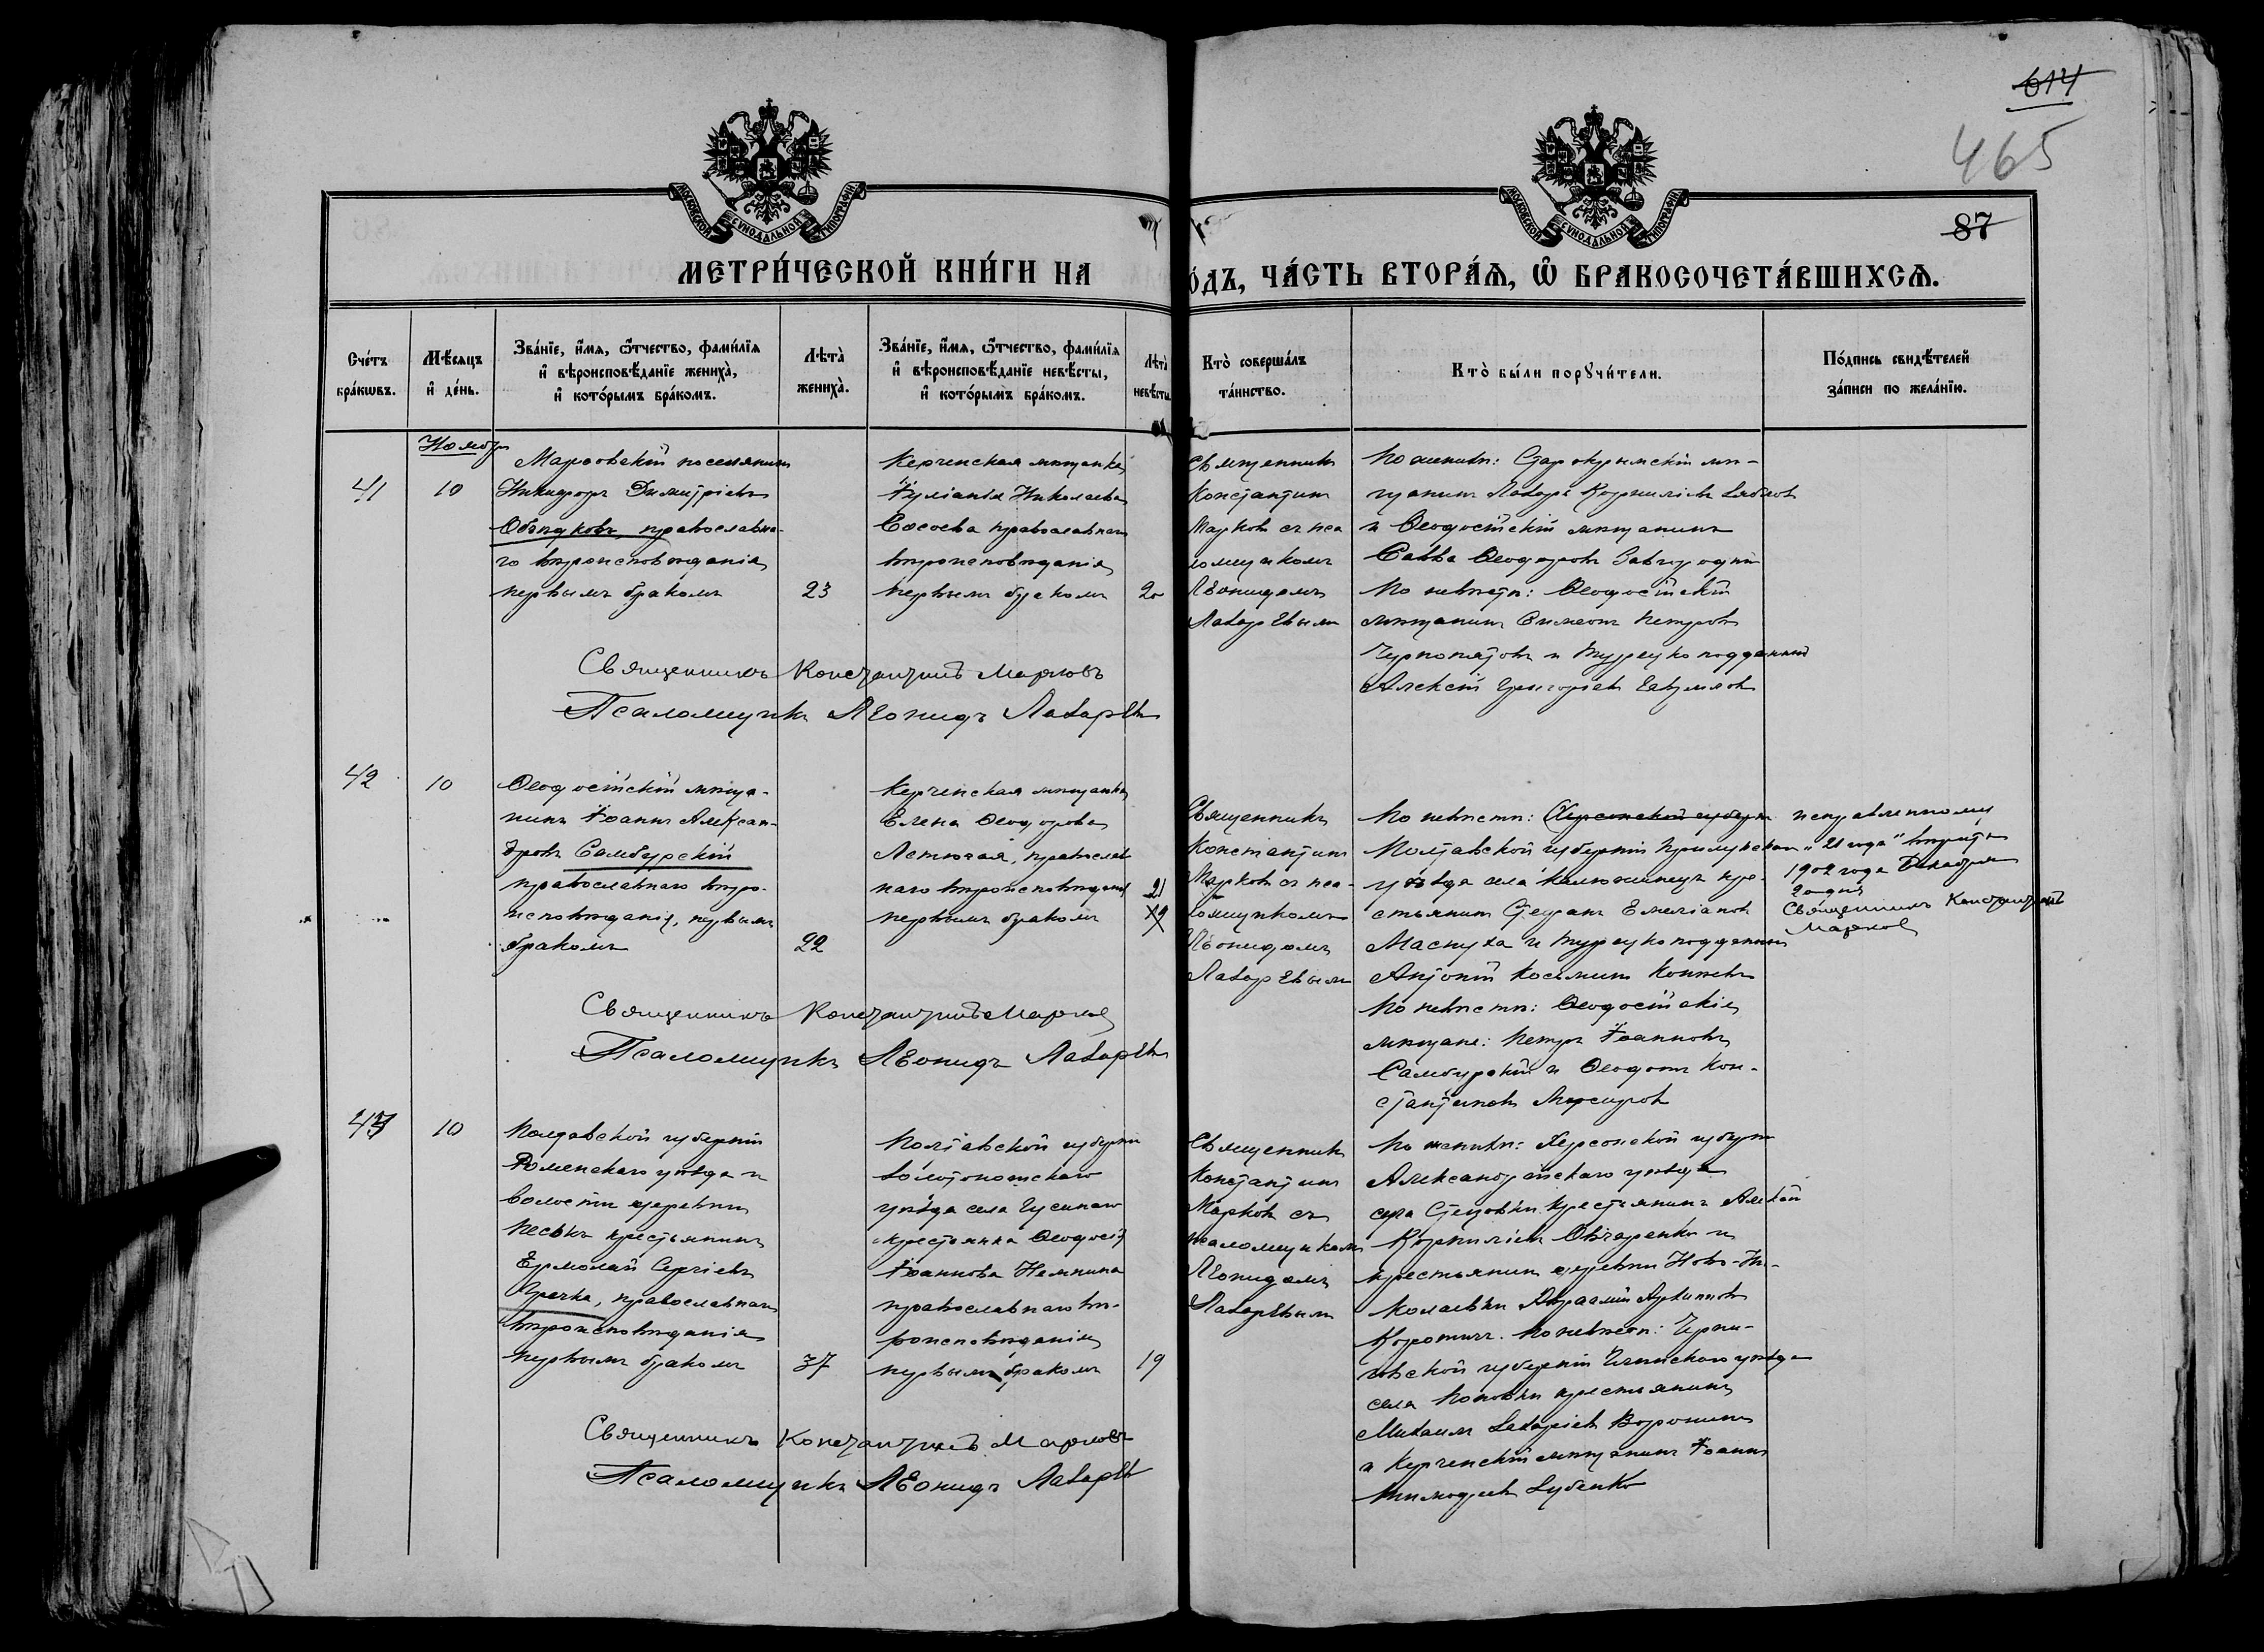 614
465
87
МОСКОВСКОЙ СѴНОДАЛЬНОЙ ТИПОГРАФІИ
МОСКОВСКОЙ СѴНОДАЛЬНОЙ ТИПОГРАФІИ
МЕТРИ́ЧЕСКОЙ КНИ́ГИ НА
О́ДЪ, ЧА́СТЬ ВТОРА́Ѧ, Ѽ БРАКОСОЧЕТА́ВШИХСѦ.
Сче́тъ бра́кѡвъ.
Мѣ́сяцъ и҆ де́нь.
Зва́нїе, и҆́мѧ, ѻ҆́тчество, фами́лїѧ
и҆ вѣроисповѣ́данїе жениха̀,
и҆ кото́рымъ бра́комъ.
Лѣта̀ жениха̀.
Зва́нїе, и҆́мѧ, ѻ҆́тчество, фами́лїѧ
и҆ вѣроисповѣ́данїе невѣ́сты,
и҆ кото́рымъ бра́комъ.
Лѣта̀ невѣ́сты.
Кто̀ соверша́лъ
та́инство.
Кто̀ бы́ли порꙋчи́тели.
По́дпись свидѣ́телей
за́писи по жела́нїю.
Ноябрь
41
10
поселянинъ
Никифоръ Димитріевъ
православна-
го вѣроисповѣданія
первымъ бракомъ
23
Керченская мѣщанка
Іуліанія Николаева
Сысоева православнаго
вѣроисповѣданія
первымъ бракомъ
20
Священникъ
Константинъ
Марковъ съ пса
ломщикомъ
Леонидомъ
Лазаревымъ
По женихѣ: Старокрымскій мѣ-
щанинъ Лазарь Корниліевъ
и Ѳеодосійскій мѣщанинъ
Савва Ѳеодоровъ Завгородній
По невѣстѣ: Ѳеодосійскій
мѣщанинъ Симеонъ Петровъ
и турецко подданный
Алексій Григоріевъ
Священникъ Константинъ Марковъ
Псаломщикъ Леонидъ Лазаревъ
42
10
Ѳеодосійскій мѣща-
нинъ Іоаннъ Алексан-
дровъ Самбурскій
православнаго вѣро-
исповѣданія, первымъ
бракомъ
22
Керченская мѣщанка
Елена Ѳеодорова
Летючая, православ
наго вѣроисповѣданія
первымъ бракомъ
21
19
Священникъ
Константинъ
Марковъ съ пса-
ломщикомъ
Леонидомъ
Лазаревымъ
По невѣстѣ: Херсонской губерн
Полтавской губерніи Прилукскаго
уѣзда села Калюжинецъ кре-
стьянинъ Стефанъ Емеліановъ
и турецко подданный
Антоній Косьминъ
По невѣстѣ: Ѳеодосійскіе
мѣщане: Петръ Іоанновъ
Самбурскій и Ѳеодотъ Кон-
стантиновъ
исправленному
„21 года“ вѣрить
1902 года Декабря
20 дня
Священникъ Константинъ
Марковъ
Священникъ Константинъ Марковъ
Псаломщикъ Леонидъ Лазаревъ
43
10
Полтавской губерніи
Роменскаго уѣзда и
волости деревни
Пески крестьянинъ
Ермолай Сергіевъ
православнаго
вѣроисповѣданія
первымъ бракомъ
37
Полтавской губерніи
Золотоношскаго
уѣзда села Гусинаго
крестьянка Ѳеодосія
Іоаннова
православнаго вѣ-
роисповѣданія
первымъ бракомъ
19
Священникъ
Константинъ
Марковъ съ
псаломщикомъ
Леонидомъ
Лазаревымъ
По женихѣ: Херсонской губерн
Александрійскаго уѣзда
села Стецовки крестьянинъ Алексій
Корниліевъ Овчаренко и
крестьянинъ деревни Ново-Ни-
колаевки Авраамій Архиповъ
По невѣстѣ: Черни-
говской губерніи уѣзда
села Поповки крестьянинъ
Михаилъ Захаріевъ
и Керченскій мѣщанинъ Іоаннъ
Тимоѳеевъ Зубенко
Священникъ Константинъ Марковъ
Псаломщикъ Леонидъ Лазаревъ